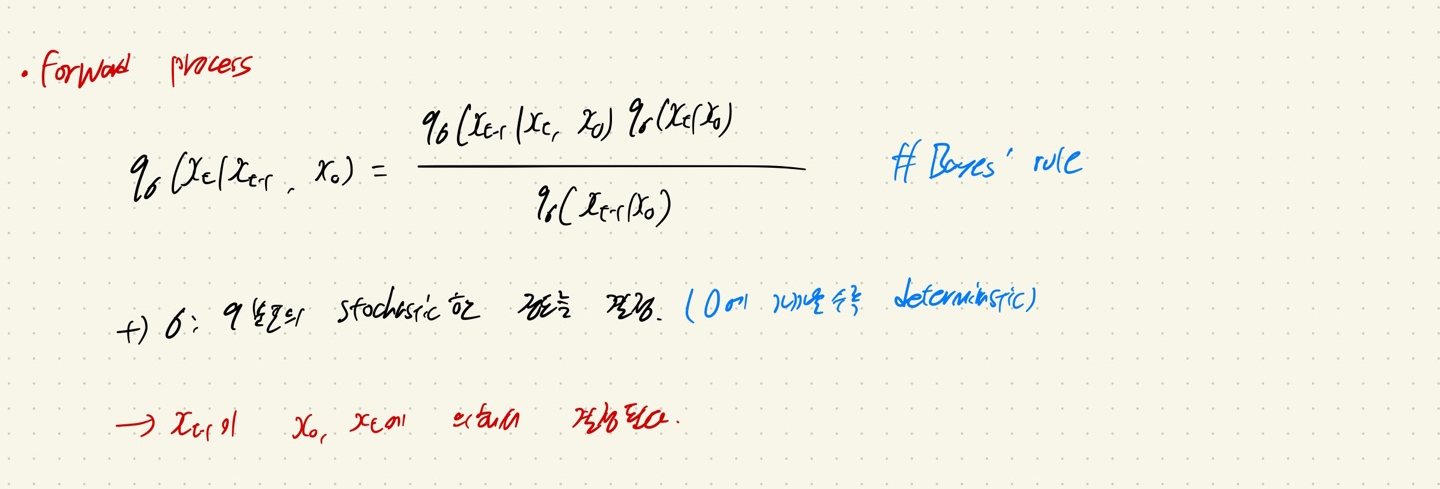 • Forward process
q_σ(x_t|x_{t-1}, x_0) = \frac{q_σ(x_{t-1}|x_t, x_0) q_σ(x_t|x_0)}{q_σ(x_{t-1}|x_0)} # Bayes' rule
+) σ: q 분포의 stochastic한 정도를 결정. (0에 가까울수록 deterministic)
→ x_{t-1}이 x_0, x_t에 의해서 결정된다.